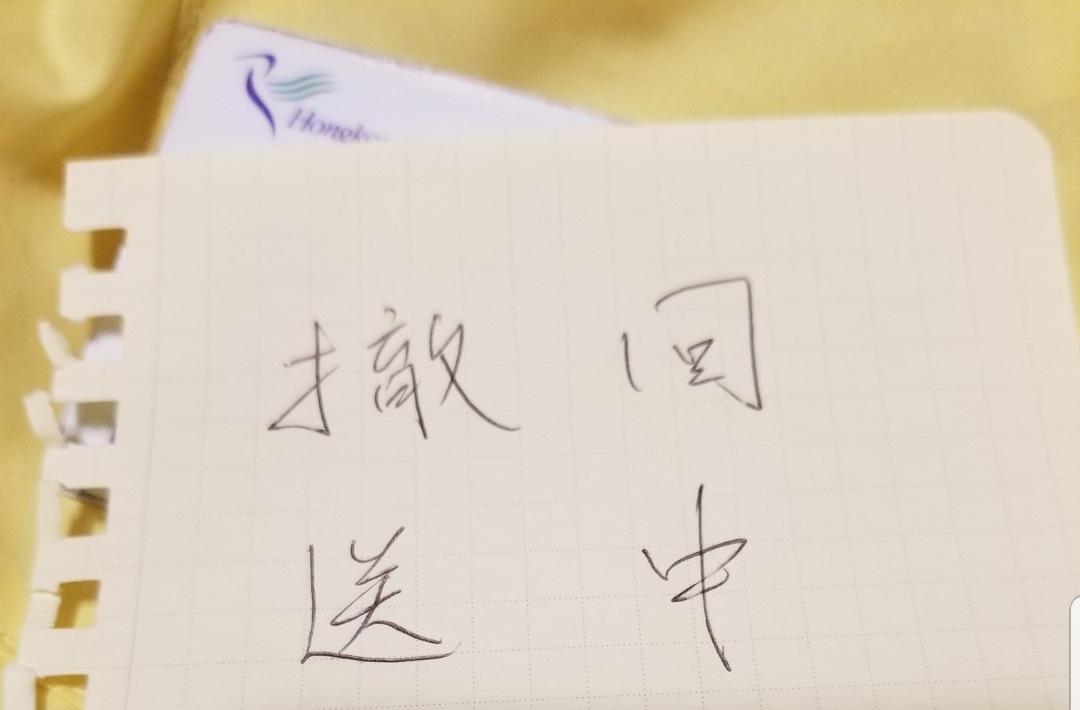 Hongko
撤回
送中